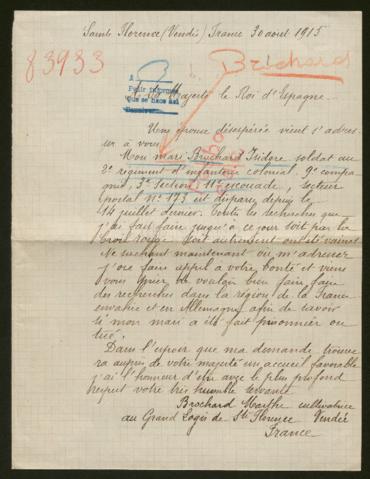 Sainte Florence (Vendée) France 30 août 1915
83933
Brichard
A
Pedir informes
que se hace así
A Sa Majesté le Roi d'Espagne.
Une épouse désespérée vient s'adres-
ser à vous
Mon mari Brochard Isidore soldat au
2e régiment d'infanterie colonial, 9e compa
gnie, 3e Section, 11e escouade, secteur
postal no 173 est disparu depuis le
14 juillet dernier. Toutes les recherches que
j'ai fait faire jusqu'à ce jour soit par la
croix rouge. Soit autrement ont été vaines.
Ne sachant maintenant où m'adresser
j'ose faire appel à votre bonté et viens
vous prier de vouloir bien faire faire
des recherches dans la région de la France
envahie et en Allemagne afin de savoir
si mon mari a été fait prisonnier ou
tué.
Dans l'espoir que ma demande trouve
ra auprès de votre majesté un accueil favorable
j'ai l'honneur d'être avec le plus profond
respect votre très humble servante
Brochard Marthe cultivatrice
au Grand Logis de Ste Florence Vendée
France